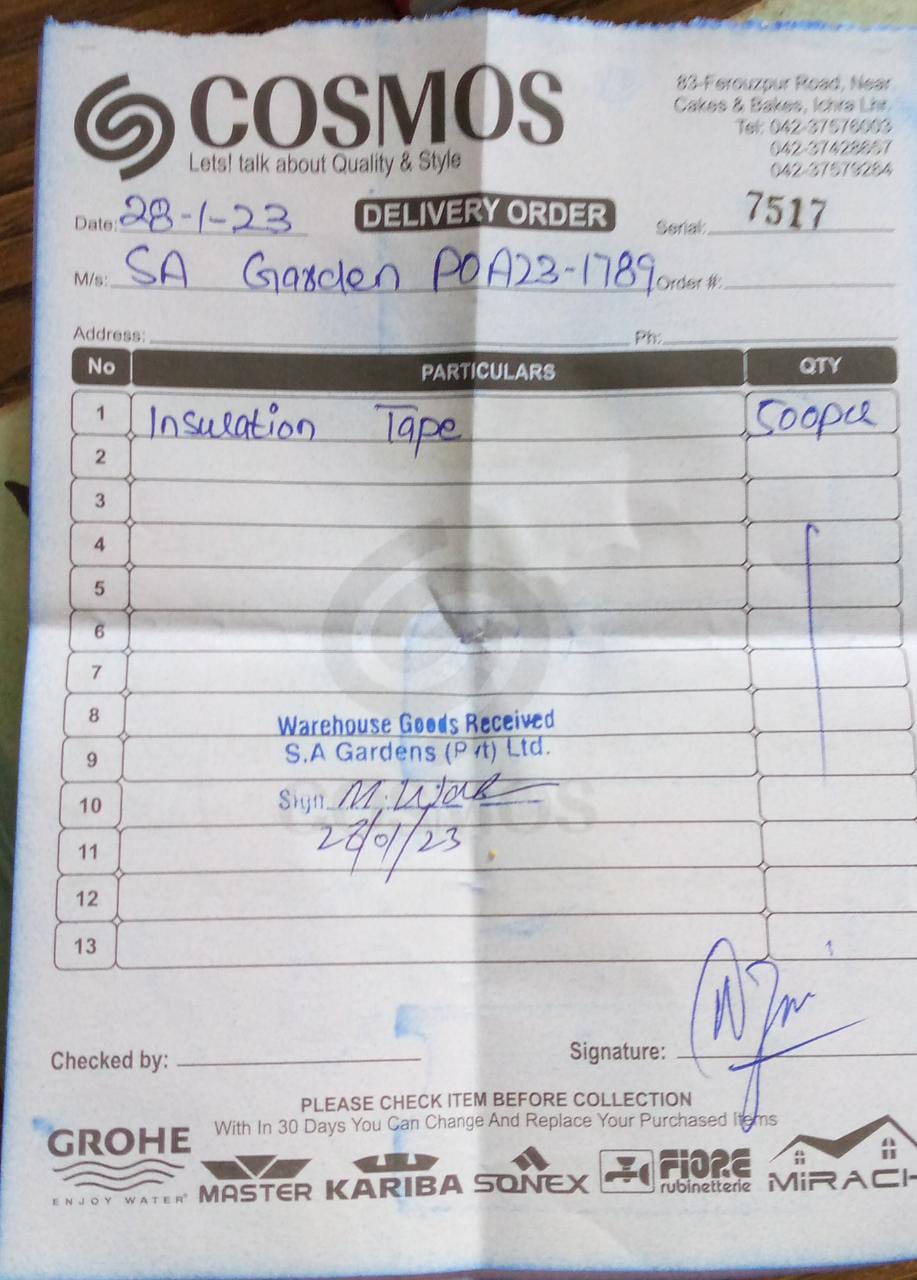 COSMOS
Lets! talk about Quality & Style
83-Ferouzpur Road, Near
Cakes & Bakes, Ichra Lhr.
Tel: 042-37576003
042-37428667
042-37579284
Date: 28-1-23
DELIVERY ORDER
Serial: 7517
M/s: SA Garden POA23-1789 Order #:
Address: Ph:
No PARTICULARS QTY
1 Insulation Tape 500pcs
2
3
4
5
6
7
8
Warehouse Goods Received
9
S.A Gardens (Pvt) Ltd.
10
Sign
COSMOS
11
28/01/23
12
13
Checked by:
Signature:
PLEASE CHECK ITEM BEFORE COLLECTION
With In 30 Days You Can Change And Replace Your Purchased Items
GROHE
ENJOY WATER®
MASTER
KARIBA
SONEX
FIORE
rubinetterie
MiRACH